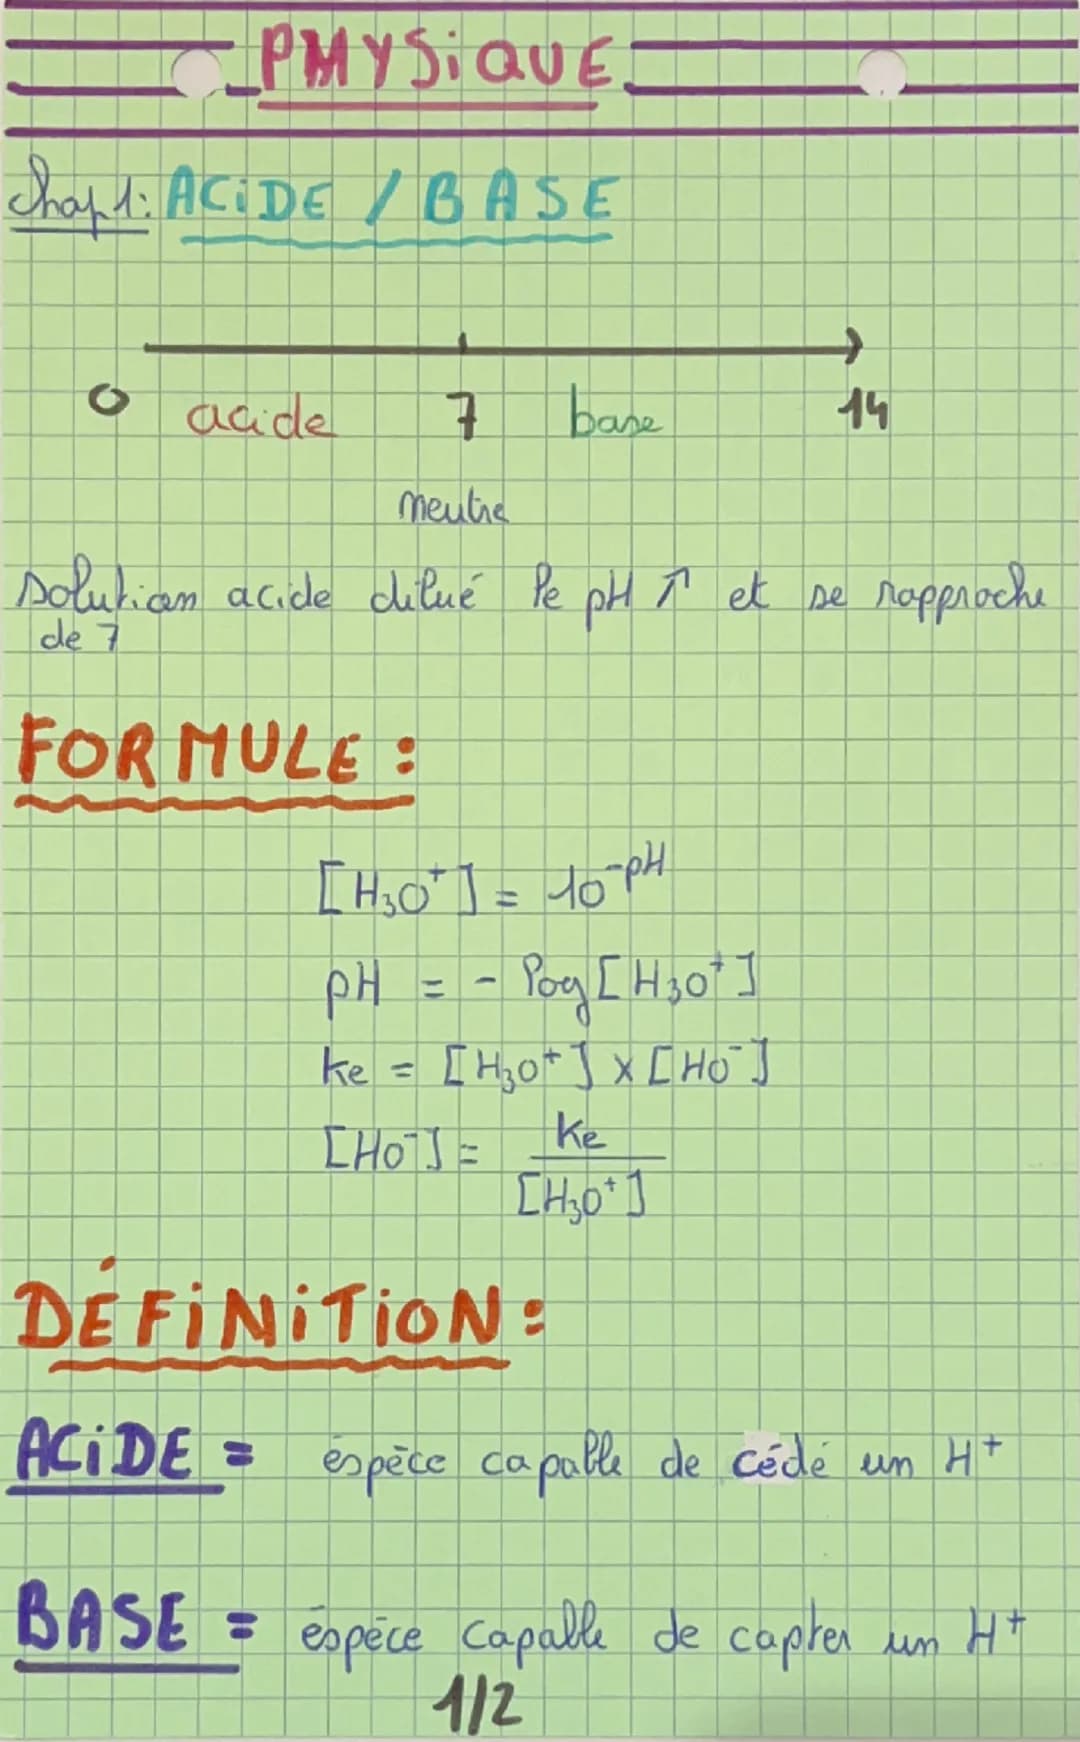 PHYSiQUE
Chap 1: ACiDE / BASE
0 acide 7 base 14
neutre
solution acide dilué le pH ↑ et se rapproche
de 7
FORMULE :
[H₃O⁺] = 10⁻ᵖᴴ
pH = - log [H₃O⁺]
ke = [H₃O⁺] x [HO⁻]
[HO⁻] = Ke / [H₃O⁺]
DÉFiNiTiON :
ACiDE = éspèce capable de cédé un H⁺
BASE = éspèce capable de capter un H⁺
1/2